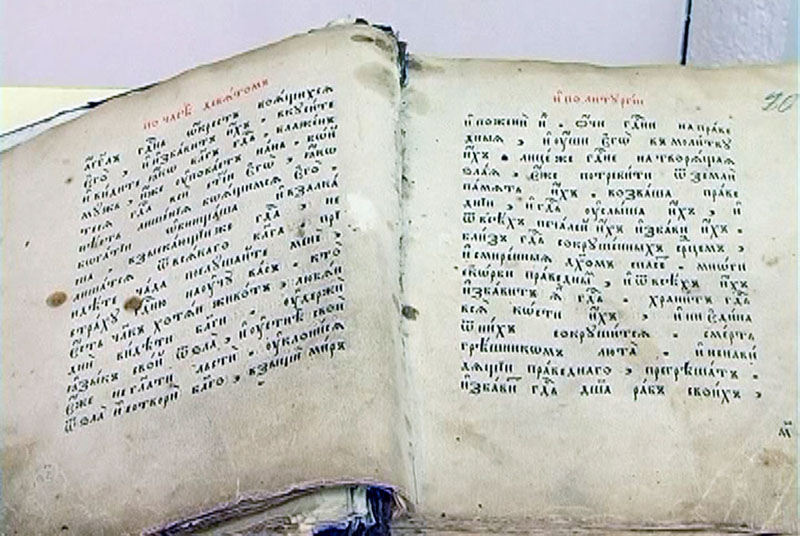 по часѣ девѧ́томъ
а҆́гг҃лъ гдⷭ҇нь ѡ҆́крестъ боѧ́щихсѧ
є҆гѡ̀ , и҆ и҆зба́витъ и҆̀хъ . вкꙋси́те
и҆ ви́дите ꙗ҆́кѡ бл҃гъ гдⷭ҇ь . бл҃же́нъ
мꙋ́жъ , и҆́же ᲂу҆пова́етъ на́нь . бо́й
тесѧ гдⷭ҇а всѝ ст҃і́и є҆гѡ̀ , ꙗ҆́кѡ
нѣ́сть лише́нїѧ боѧ́щимсѧ є҆гѡ̀ .
бога́тїи ѡ҆бнища́ша и҆ взалка́
ша взыска́ющїи же гдⷭ҇а , не
лиша́тсѧ всѧ́кагѡ бл҃га . прї
идѣ́те ча̑да послꙋ́шайте менѐ ,
стра́хꙋ гдⷭ҇ню наꙋчꙋ̀ ва́съ . кто̀
є҆́сть чл҃къ хотѧ́й живо́тъ , любѧ́й
дни̑ ви́дѣти бл҃ги . ᲂу҆держѝ
ꙗ҆зы́къ сво́й ѿ ѕла̀ , и҆ ᲂу҆стнѣ̀ свои̑
є҆́же не гл҃ати льстѝ . ᲂу҆клони́сѧ
ѿ ѕла̀ и҆ сотворѝ бл҃го , взыщѝ ми́ръ
и҆ по литꙋргі́и
90
и҆ поженѝ и҆̀ . ѻ҆́чи гдⷭ҇ни на пра́ве
дныѧ , и҆ ᲂу҆́ши є҆гѡ̀ въ моли́твꙋ
и҆́хъ . лицє́ же гдⷭ҇не на творѧ́щаѧ
ѕла̑ѧ , є҆́же потреби́ти ѿ землѝ
па́мѧть и҆́хъ . возва́ша пра́ве
днїи , и҆ гдⷭ҇ь ᲂу҆слы́ша и҆̀хъ , и҆
ѿ всѣ́хъ печа́лей и҆́хъ и҆зба́ви и҆̀хъ .
бли́зъ гдⷭ҇ь сокрꙋше́нныхъ срⷣцемъ ,
и҆ смире́нныѧ дх҃омъ спасе́тъ . мнѡ́ги
ско́рби пра́веднымъ , и҆ ѿ всѣ́хъ и҆́хъ
и҆зба́витъ ѧ҆̀ гдⷭ҇ь . храни́тъ гдⷭ҇ь
всѧ̑ кѡ́сти и҆́хъ , и҆ ни є҆ди́на
ѿ ни́хъ сокрꙋши́тсѧ . сме́рть
грѣ́шникѡмъ люта̀ . и҆ ненави́
дѧщїи пра́веднаго , прегрѣша́тъ .
и҆зба́витъ гдⷭ҇ь дш҃а ра̑бъ свои́хъ ,